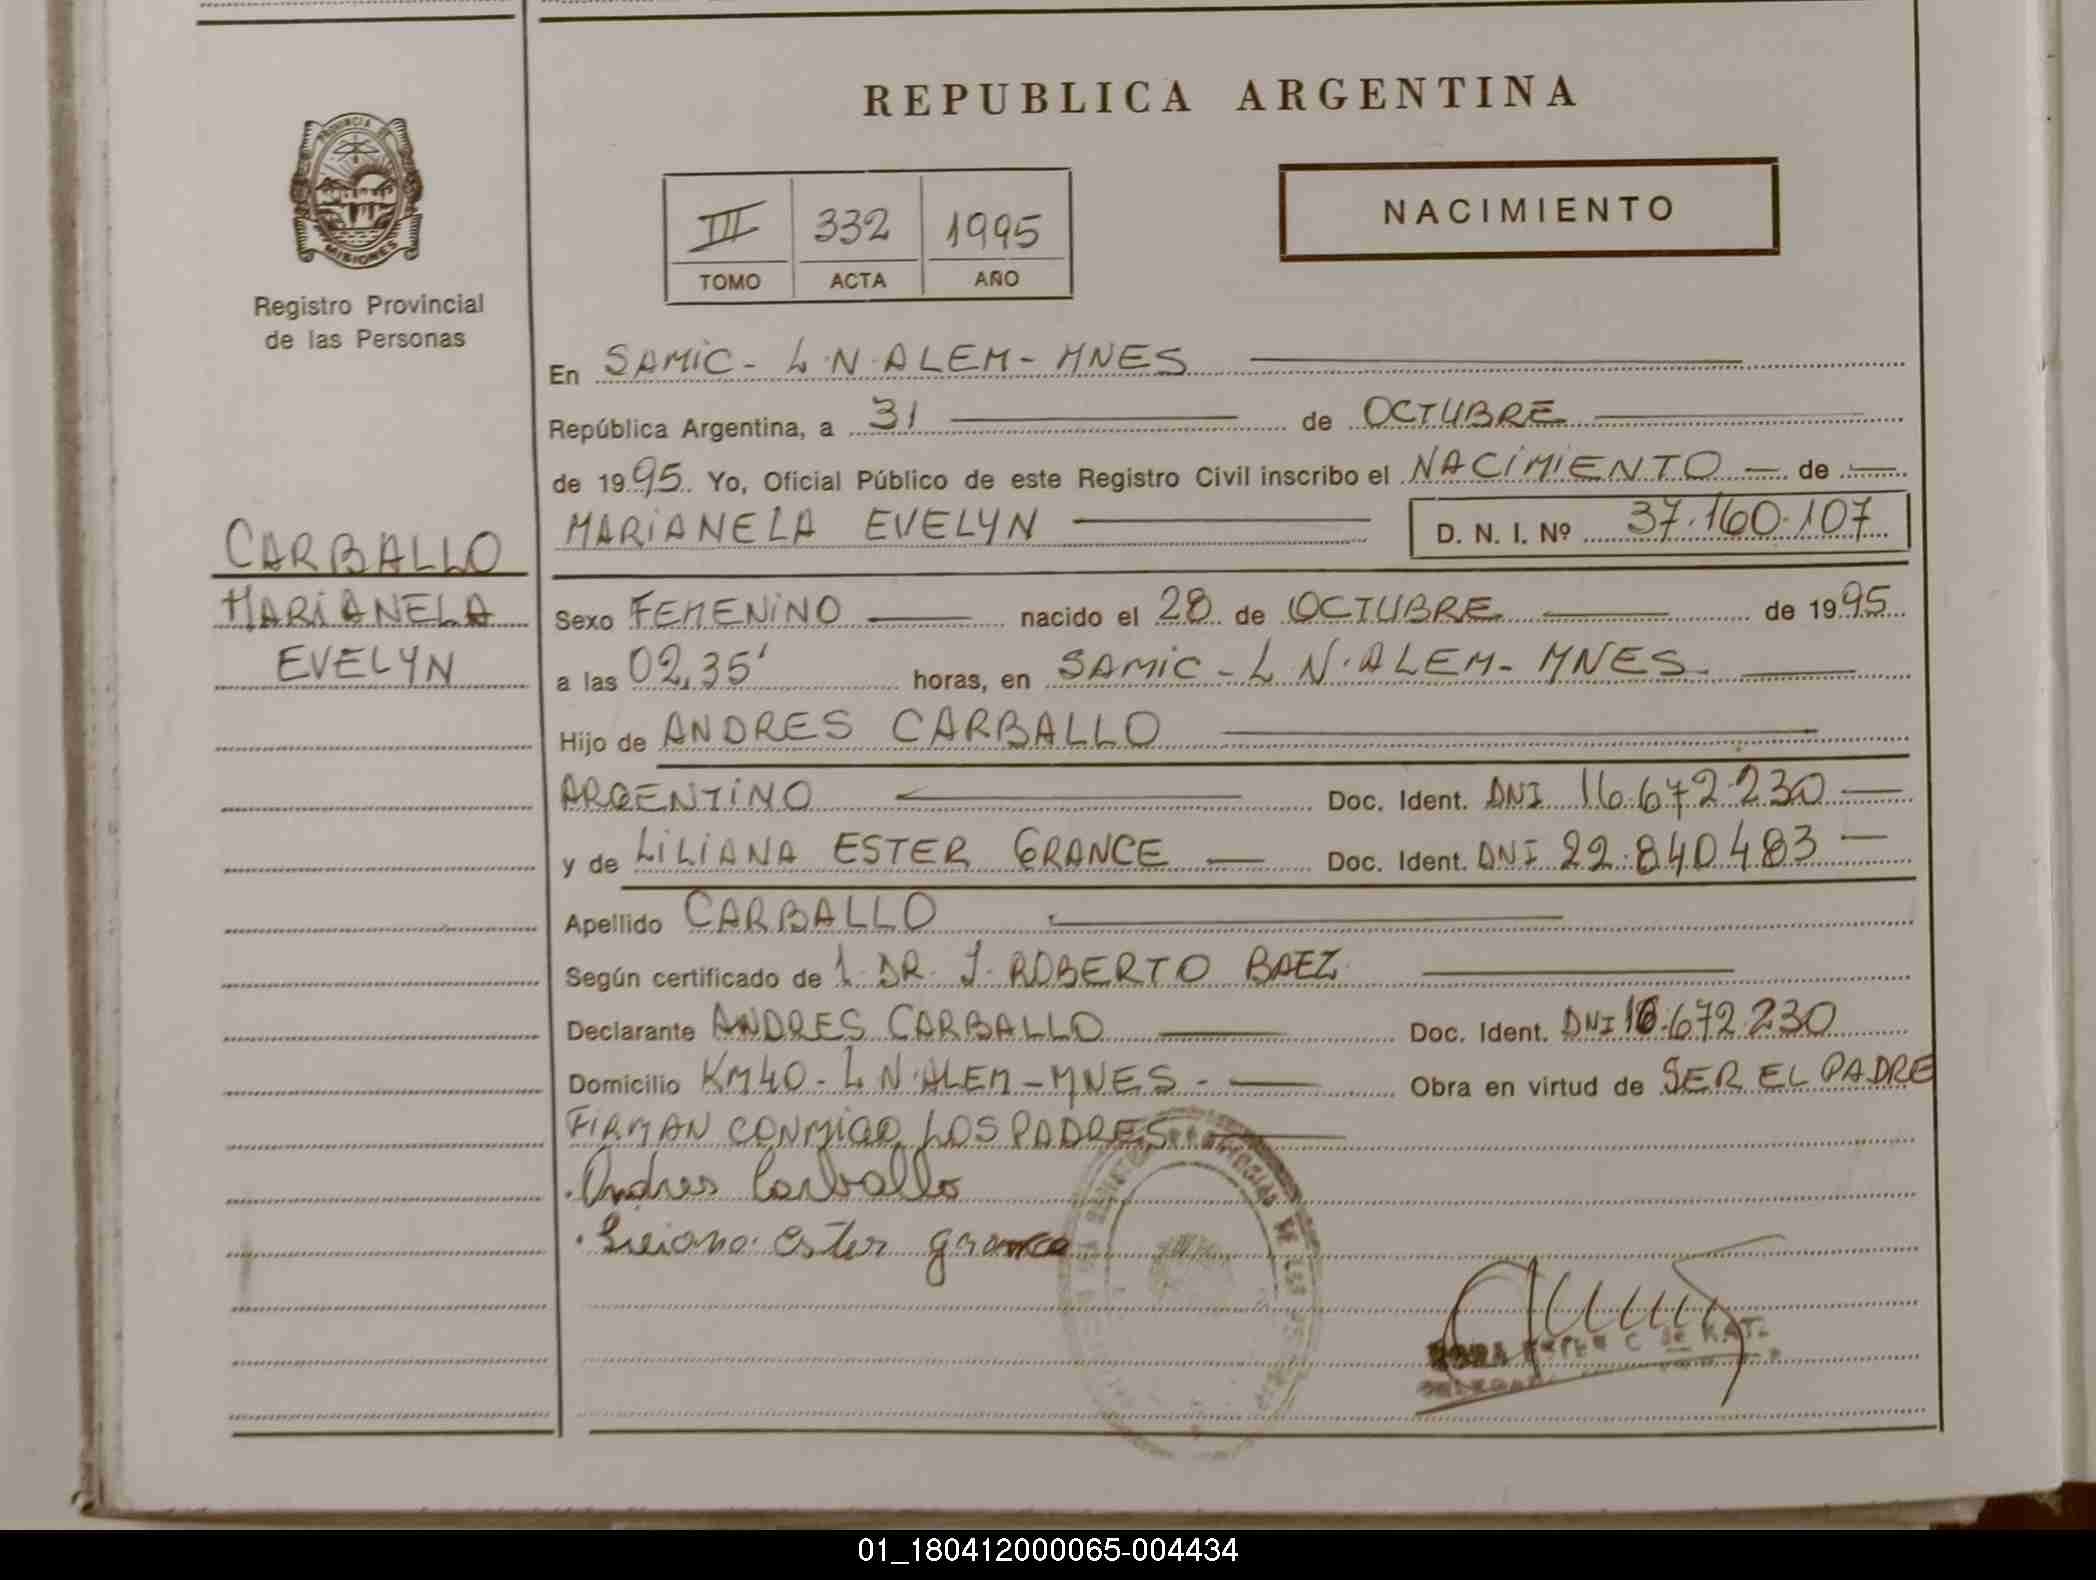 REPUBLICA ARGENTINA
PROVINCIA DE
MISIONES
Registro Provincial
de las Personas
III 332 1995
TOMO ACTA AÑO
NACIMIENTO
En SAMIC - L.N. ALEM - MNES
República Argentina, a 31 de OCTUBRE
de 1995. Yo, Oficial Público de este Registro Civil inscribo el NACIMIENTO de
MARIANELA EVELYN D. N. I. Nº 37.160.107
CARBALLO
MARIANELA
EVELYN
Sexo FEMENINO nacido el 28 de OCTUBRE de 1995
a las 02,35' horas, en SAMIC - L N. ALEM - MNES
Hijo de ANDRES CARBALLO
ARGENTINO Doc. Ident. DNI 16.672.230
y de LILIANA ESTER GRANCE Doc. Ident. DNI 22.840.483
Apellido CARBALLO
Según certificado de 1. DR. J. ROBERTO BAEZ
Declarante ANDRES CARBALLO Doc. Ident. DNI 16.672.230
Domicilio KM 40 - L N. ALEM - MNES - Obra en virtud de SER EL PADRE
FIRMAN CONMIGO LOS PADRES
Andres Carballo
Liliana Ester grance
01_180412000065-004434